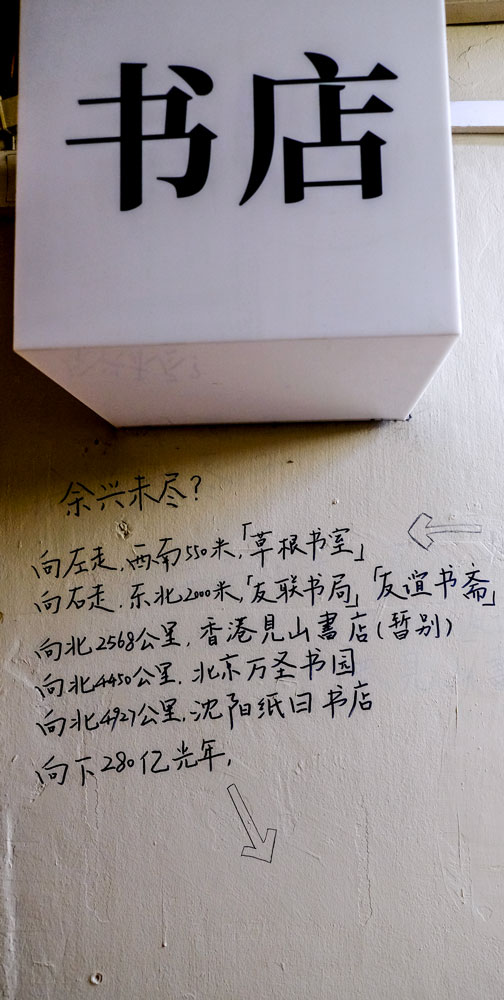 书店
余兴未尽?
向左走.西南550米,「草根书室」
向右走.东北2000米,「友联书局」「友谊书斋」
向北2568公里,香港見山書店(暂别)
向北4450公里.北京万圣书园
向北4927公里,沈阳纸曰书店
向下280亿光年,